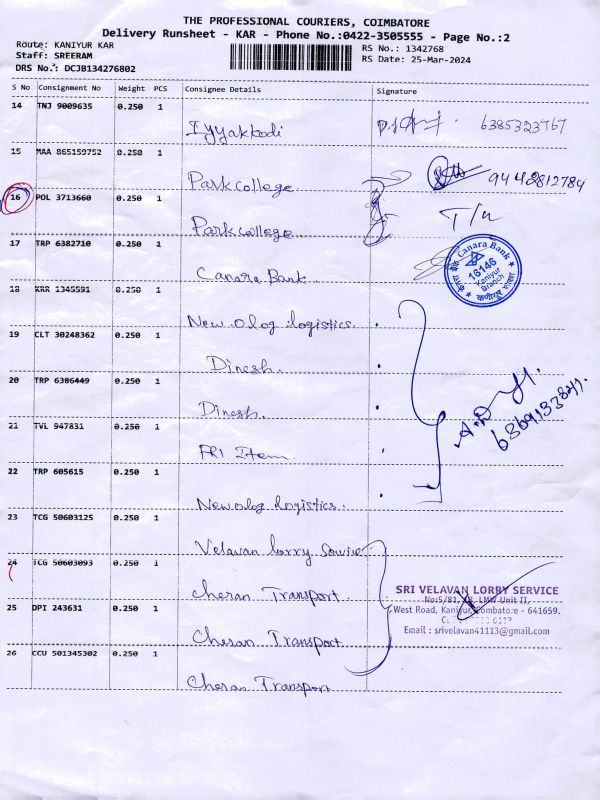 THE PROFESSIONAL COURIERS, COIMBATORE
Delivery Runsheet - KAR - Phone No.:0422-3505555 - Page No.:2
Route: KANIYUR KAR
RS No.: 1342768
Staff: SREERAM
RS Date: 25-Mar-2024
DRS No.: DCJB134276802
S No Consignment No Weight PCS Consignee Details Signature
14 TNJ 9009635 0.250 1
Iyyakkodi 6385323767
15 MAA 865159752 0.250 1
Park college 9442812784
16 POL 3713660 0.250 1
Park college
17 TRP 6382710 0.250 1
Canara Bank
Canara Bank
16146
Kaniyur
Branch
18 KRR 1345591 0.250 1
New olog logistics.
19 CLT 30248362 0.250 1
Dinesh.
20 TRP 6386449 0.250 1
Dinesh.
21 TVL 947831 0.250 1
FRI Item.
22 TRP 605615 0.250 1
New olog logistics.
23 TCG 50603125 0.250 1
Velavan lorry Service
24 TCG 50603093 0.250 1
Cheran Transport
25 DPI 243631 0.250 1
Cheran Transport
26 CCU 501345302 0.250 1
Cheran Transport
SRI VELAVAN LORRY SERVICE
No:5/81, LMW Unit II,
West Road, Kaniyur, Coimbatore - 641659.
Email : srivelavan41113@gmail.com